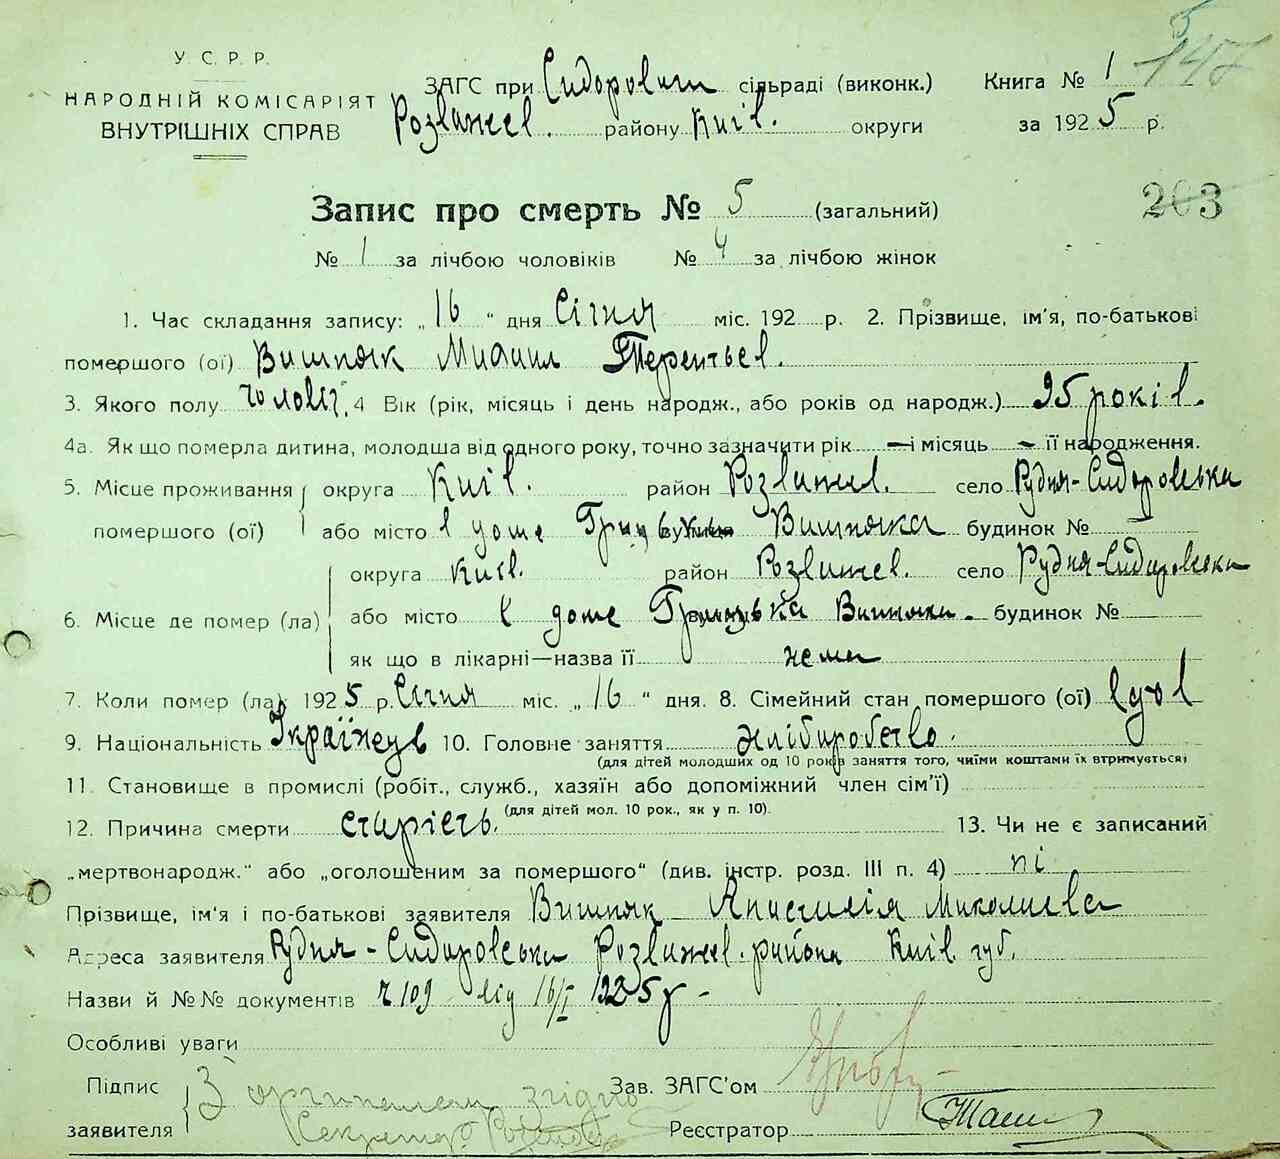 У. С. Р. Р.
НАРОДНІЙ КОМІСАРІЯТ
ВНУТРІШНІХ СПРАВ
ЗАГС при Сидорович сільраді (виконк.)
Розважев. району Киів. округи
Книга № 1
за 1925 р.
5
147
203
Запис про смерть № 5 (загальний)
№ 1 за лічбою чоловіків № 4 за лічбою жінок
1. Час складання запису: „16“ дня Січня міс. 192 р. 2. Прізвище, ім'я, по-батькові
помершого (ої) Вишняк Михаил Терентьев.
3. Якого полу чоловіч. 4 Вік (рік, місяць і день народж., або років од народж.) 95 років.
4а. Як що померла дитина, молодша від одного року, точно зазначити рік — і місяць — її народження.
5. Місце проживання помершого (ої) округа Киів. район Розважев. село Рудня-Сидоровська
або місто в доме Грицька вулиця Вишняка будинок №
6. Місце де помер (ла) округа Киів. район Розважев. село Рудня-Сидоровська
або місто в доме Грицька Вишняка. будинок №
як що в лікарні—назва її нема
7. Коли помер (ла) 1925 р. Січня міс. „16“ дня. 8. Сімейний стан помершого (ої) вдов
9. Національність Українець 10. Головне заняття хлібиробство.
(для дітей молодших од 10 років заняття того, чиїми коштами їх втримується)
11. Становище в промислі (робіт., служб., хазяїн або допоміжний член сім'ї)
(для дітей мол. 10 рок., як у п. 10).
12. Причина смерти старість. 13. Чи не є записаний
„мертвонародж.“ або „оголошеним за помершого“ (див. інстр. розд. III п. 4) ні
Прізвище, ім'я і по-батькові заявителя Вишняк Анастасія Миколаева
Адреса заявителя Рудня-Сидоровська Розважев. района Киів губ.
Назви й №№ документів ч 109 від 16/I 1925 р -
Особливі уваги
Підпис заявителя З оригиналом згідно
Секретар
Зав. ЗАГС'ом
Реєстратор